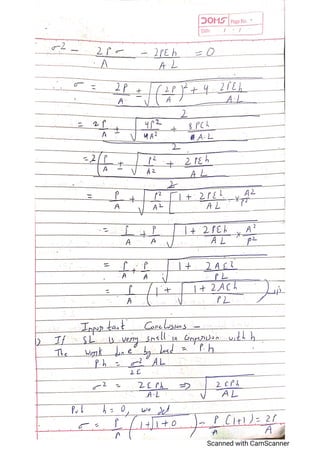 DOMS Page No.
Date / /
σ² - 2Pσ/A - 2PEh/AL = 0
σ = 2P/A ± √((2P/A)² + 4 2PEh/AL) / 2
= 2P/A ± √(4P²/A² + 8PEh/A.L) / 2
= 2(P/A ± √(P²/A² + 2PEh/AL)) / 2
= P/A + √(P²/A² [1 + 2PEh/AL × A²/P²
= P/A + P/A √(1 + 2PEh/AL × A²/P²)
= P/A + P/A √(1 + 2AEh/PL)
= P/A (1 + √(1 + 2AEh/PL))
Important Conclusions -
If δL is very small in comparison with h
The work done by load = P.h
P.h = σ²/2E AL
σ² = 2EPh/AL ⇒ √(2EPh/AL)
Put h = 0, we get
σ = P/A (1 + √(1+0)) = P/A (1+1) = 2P/A
Scanned with CamScanner